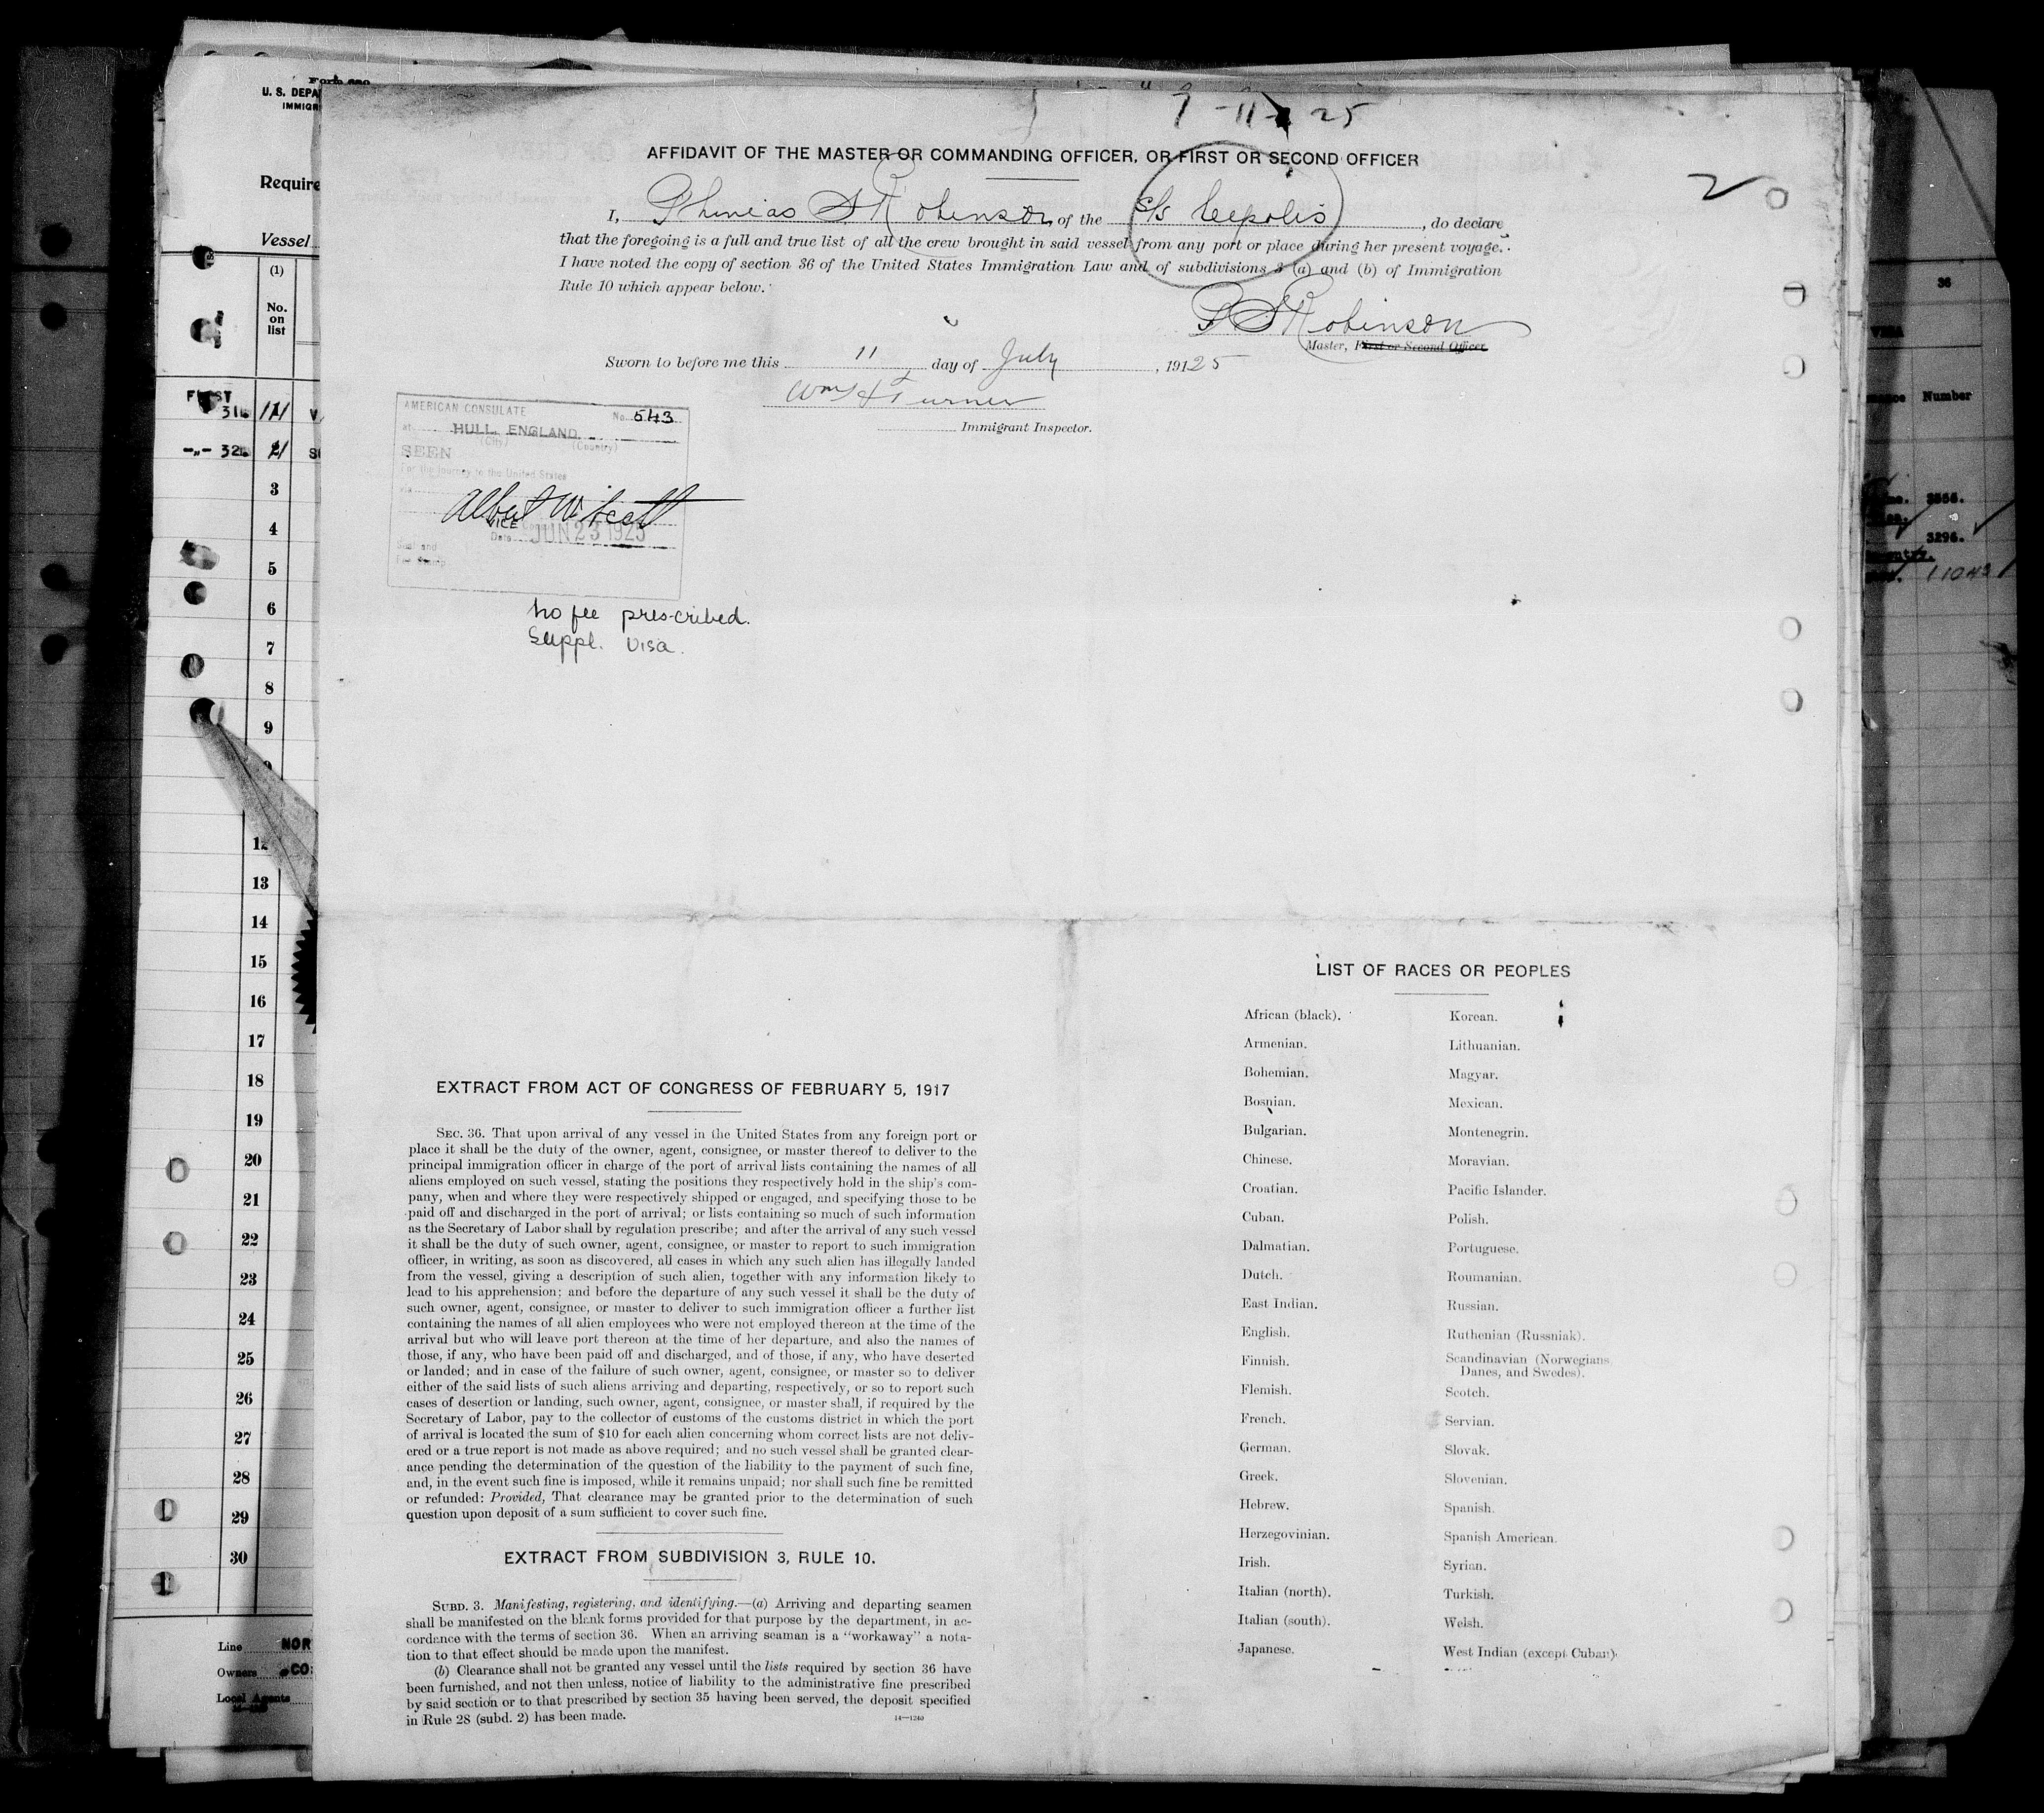 Form 689
U. S. DEPA
IMMIGR
Require
Vessel
(1)
No.
on
list
FIRST
31
32
3
4
5
6
7
8
9
12
13
14
15
16
17
18
19
20
21
22
23
24
25
26
27
28
29
30
Line NOR
Owners CO
Local Agents
7-11-25
2
AFFIDAVIT OF THE MASTER OR COMMANDING OFFICER, OR FIRST OR SECOND OFFICER
I, Phineas S Robinson, of the S/S , do declare
that the foregoing is a full and true list of all the crew brought in said vessel from any port or place during her present voyage.
I have noted the copy of section 36 of the United States Immigration Law and of subdivisions 3 (a) and (b) of Immigration
Rule 10 which appear below.
P S Robinson
Master, First or Second Officer.
Sworn to before me this 11 day of July, 19125
Wm H Turner
Immigrant Inspector.
AMERICAN CONSULATE No. 543
at HULL, ENGLAND
(City) (Country)
SEEN
For the journey to the United States
via
Albert W Scott
VICE Consul
Date JUN 23 1925
Seal and
Fee Stamp
No fee prescribed.
Suppl. Visa.
EXTRACT FROM ACT OF CONGRESS OF FEBRUARY 5, 1917
SEC. 36. That upon arrival of any vessel in the United States from any foreign port or
place it shall be the duty of the owner, agent, consignee, or master thereof to deliver to the
principal immigration officer in charge of the port of arrival lists containing the names of all
aliens employed on such vessel, stating the positions they respectively hold in the ship's com-
pany, when and where they were respectively shipped or engaged, and specifying those to be
paid off and discharged in the port of arrival; or lists containing so much of such information
as the Secretary of Labor shall by regulation prescribe; and after the arrival of any such vessel
it shall be the duty of such owner, agent, consignee, or master to report to such immigration
officer, in writing, as soon as discovered, all cases in which any such alien has illegally landed
from the vessel, giving a description of such alien, together with any information likely to
lead to his apprehension; and before the departure of any such vessel it shall be the duty of
such owner, agent, consignee, or master to deliver to such immigration officer a further list
containing the names of all alien employees who were not employed thereon at the time of the
arrival but who will leave port thereon at the time of her departure, and also the names of
those, if any, who have been paid off and discharged, and of those, if any, who have deserted
or landed; and in case of the failure of such owner, agent, consignee, or master so to deliver
either of the said lists of such aliens arriving and departing, respectively, or so to report such
cases of desertion or landing, such owner, agent, consignee, or master shall, if required by the
Secretary of Labor, pay to the collector of customs of the customs district in which the port
of arrival is located the sum of $10 for each alien concerning whom correct lists are not deliv-
ered or a true report is not made as above required; and no such vessel shall be granted clear-
ance pending the determination of the question of the liability to the payment of such fine,
and, in the event such fine is imposed, while it remains unpaid; nor shall such fine be remitted
or refunded: Provided, That clearance may be granted prior to the determination of such
question upon deposit of a sum sufficient to cover such fine.
EXTRACT FROM SUBDIVISION 3, RULE 10.
SUBD. 3. Manifesting, registering, and identifying.—(a) Arriving and departing seamen
shall be manifested on the blank forms provided for that purpose by the department, in ac-
cordance with the terms of section 36. When an arriving seaman is a "workaway" a nota-
tion to that effect should be made upon the manifest.
(b) Clearance shall not be granted any vessel until the lists required by section 36 have
been furnished, and not then unless, notice of liability to the administrative fine prescribed
by said section or to that prescribed by section 35 having been served, the deposit specified
in Rule 28 (subd. 2) has been made.
14—1240
LIST OF RACES OR PEOPLES
African (black).
Armenian.
Bohemian.
Bosnian.
Bulgarian.
Chinese.
Croatian.
Cuban.
Dalmatian.
Dutch.
East Indian.
English.
Finnish.
Flemish.
French.
German.
Greek.
Hebrew.
Herzegovinian.
Irish.
Italian (north).
Italian (south).
Japanese.
Korean.
Lithuanian.
Magyar.
Mexican.
Montenegrin.
Moravian.
Pacific Islander.
Polish.
Portuguese.
Roumanian.
Russian.
Ruthenian (Russniak).
Scandinavian (Norwegians,
Danes, and Swedes).
Scotch.
Servian.
Slovak.
Slovenian.
Spanish.
Spanish American.
Syrian.
Turkish.
Welsh.
West Indian (except Cuban).
36
Number
3296.